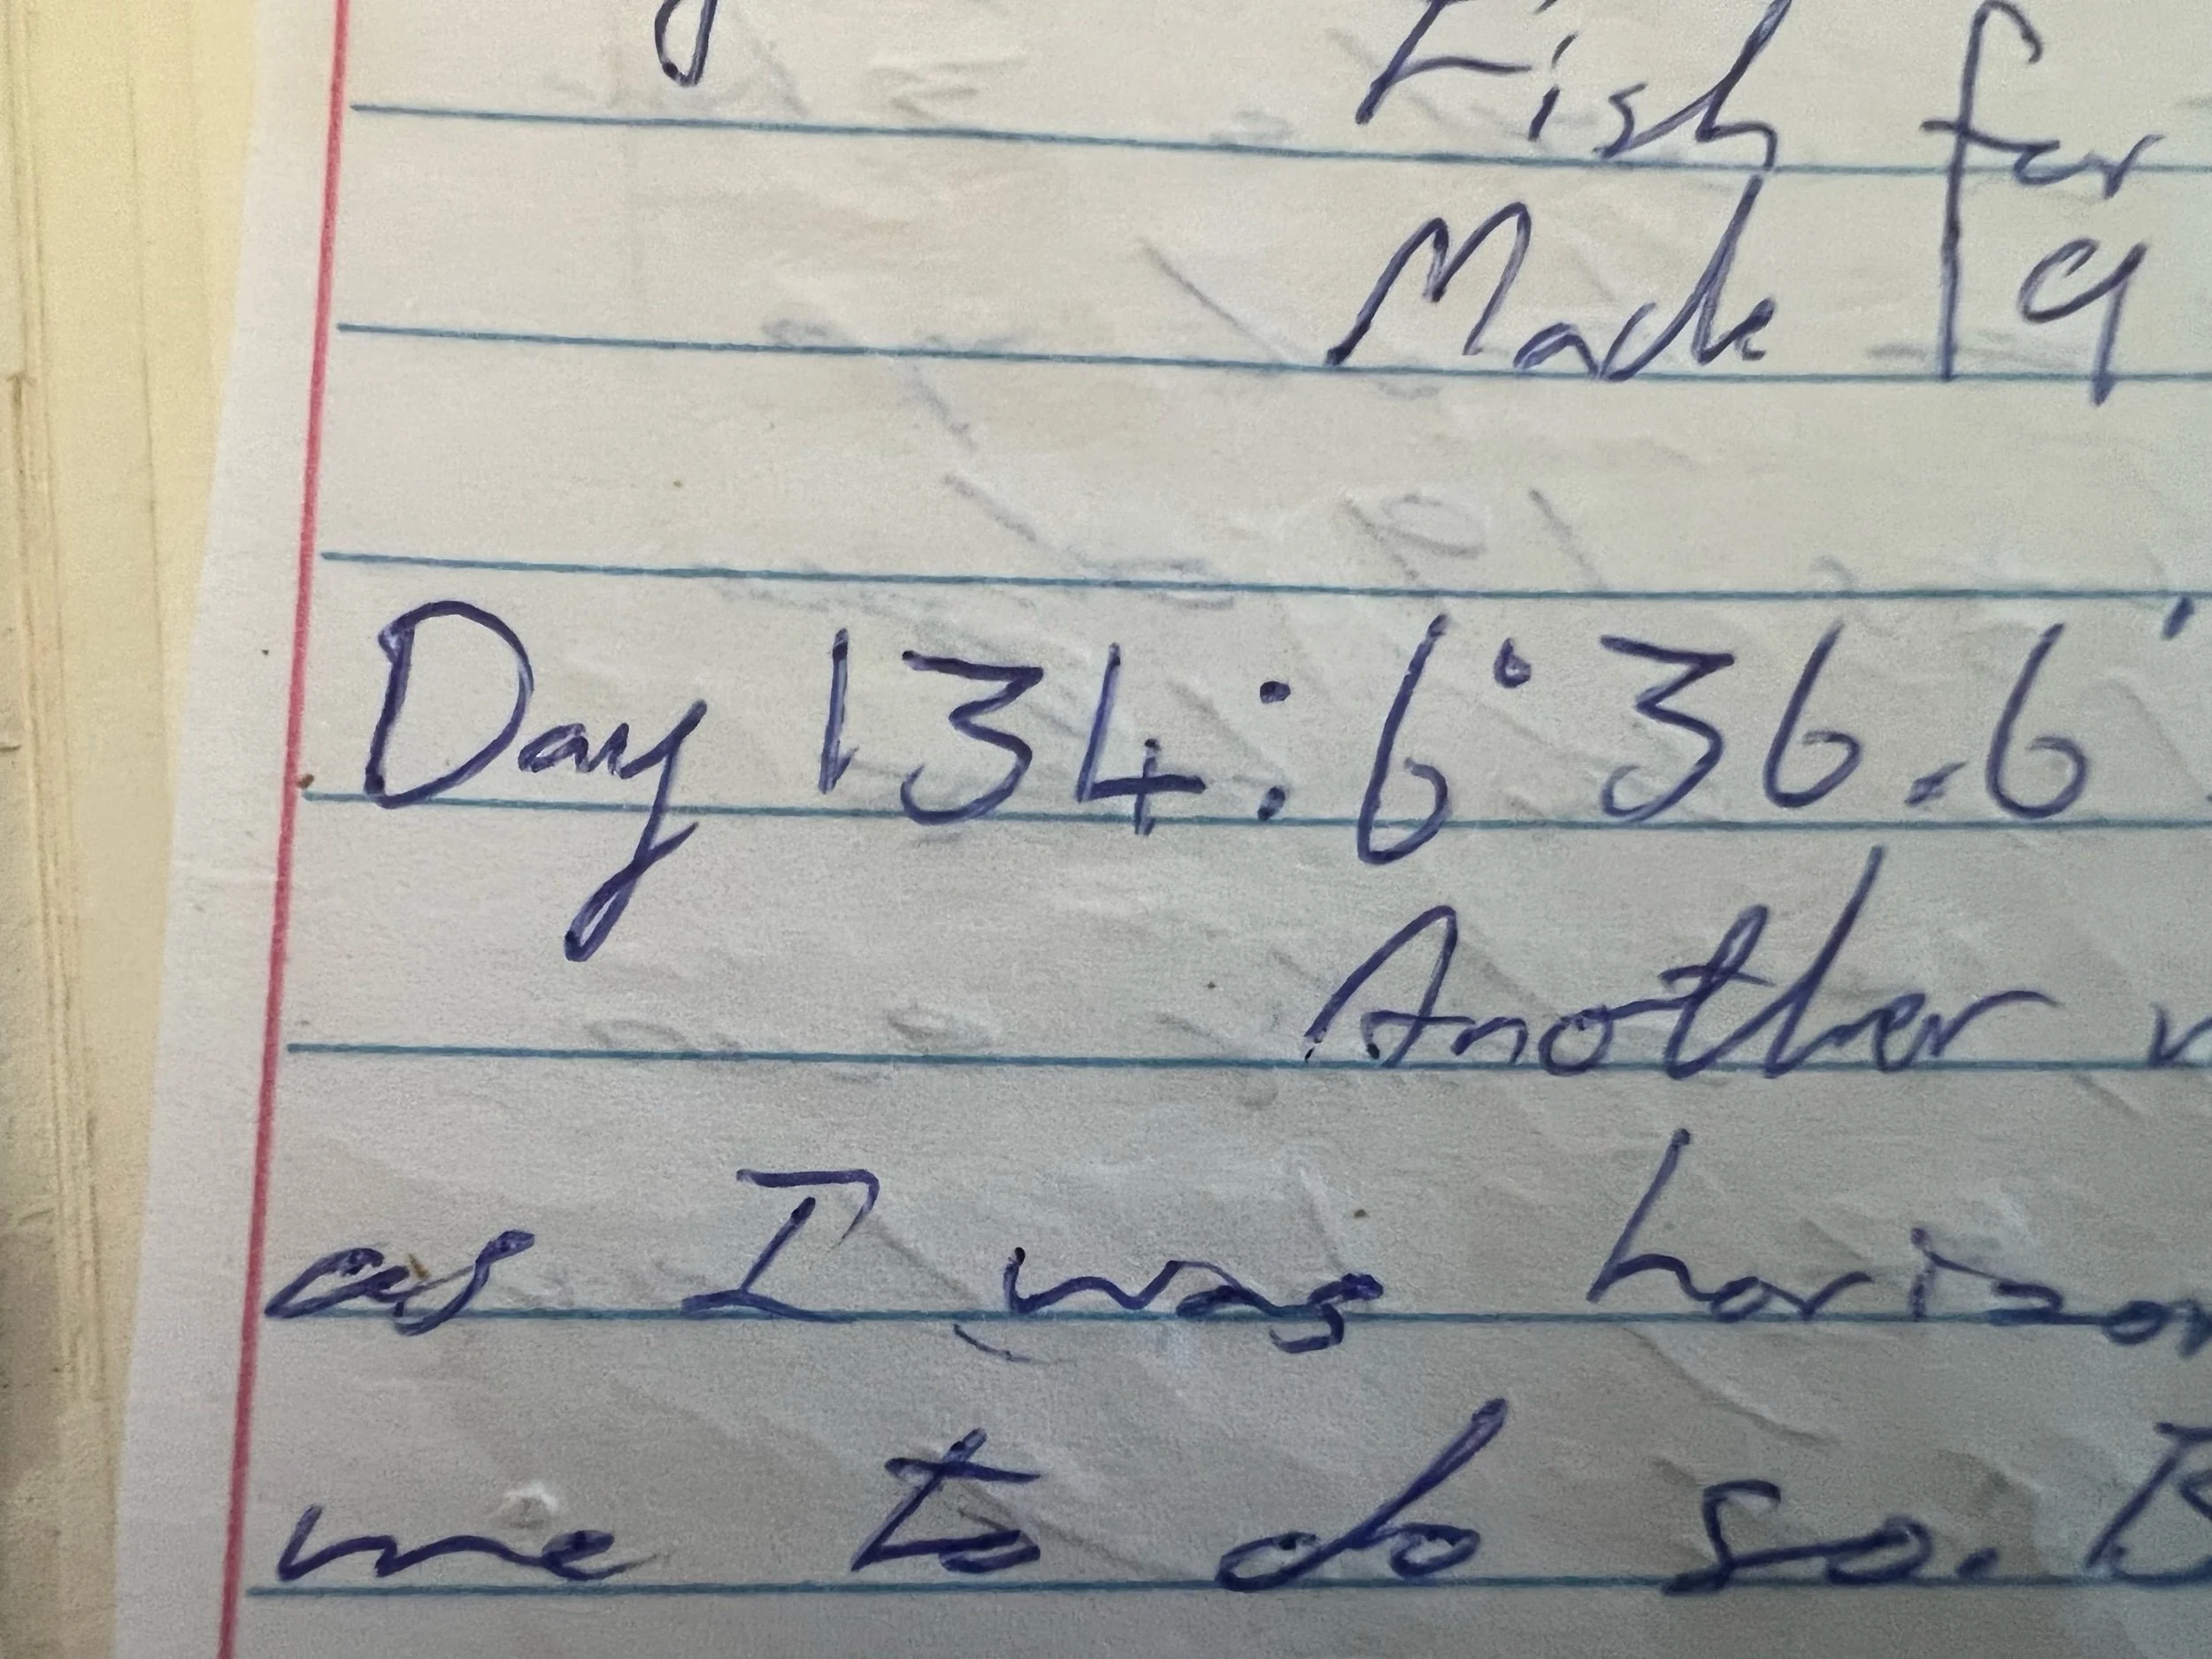 Fish for
Made a
Day 134: 6° 36.6'
Another
as I was
me to do so.